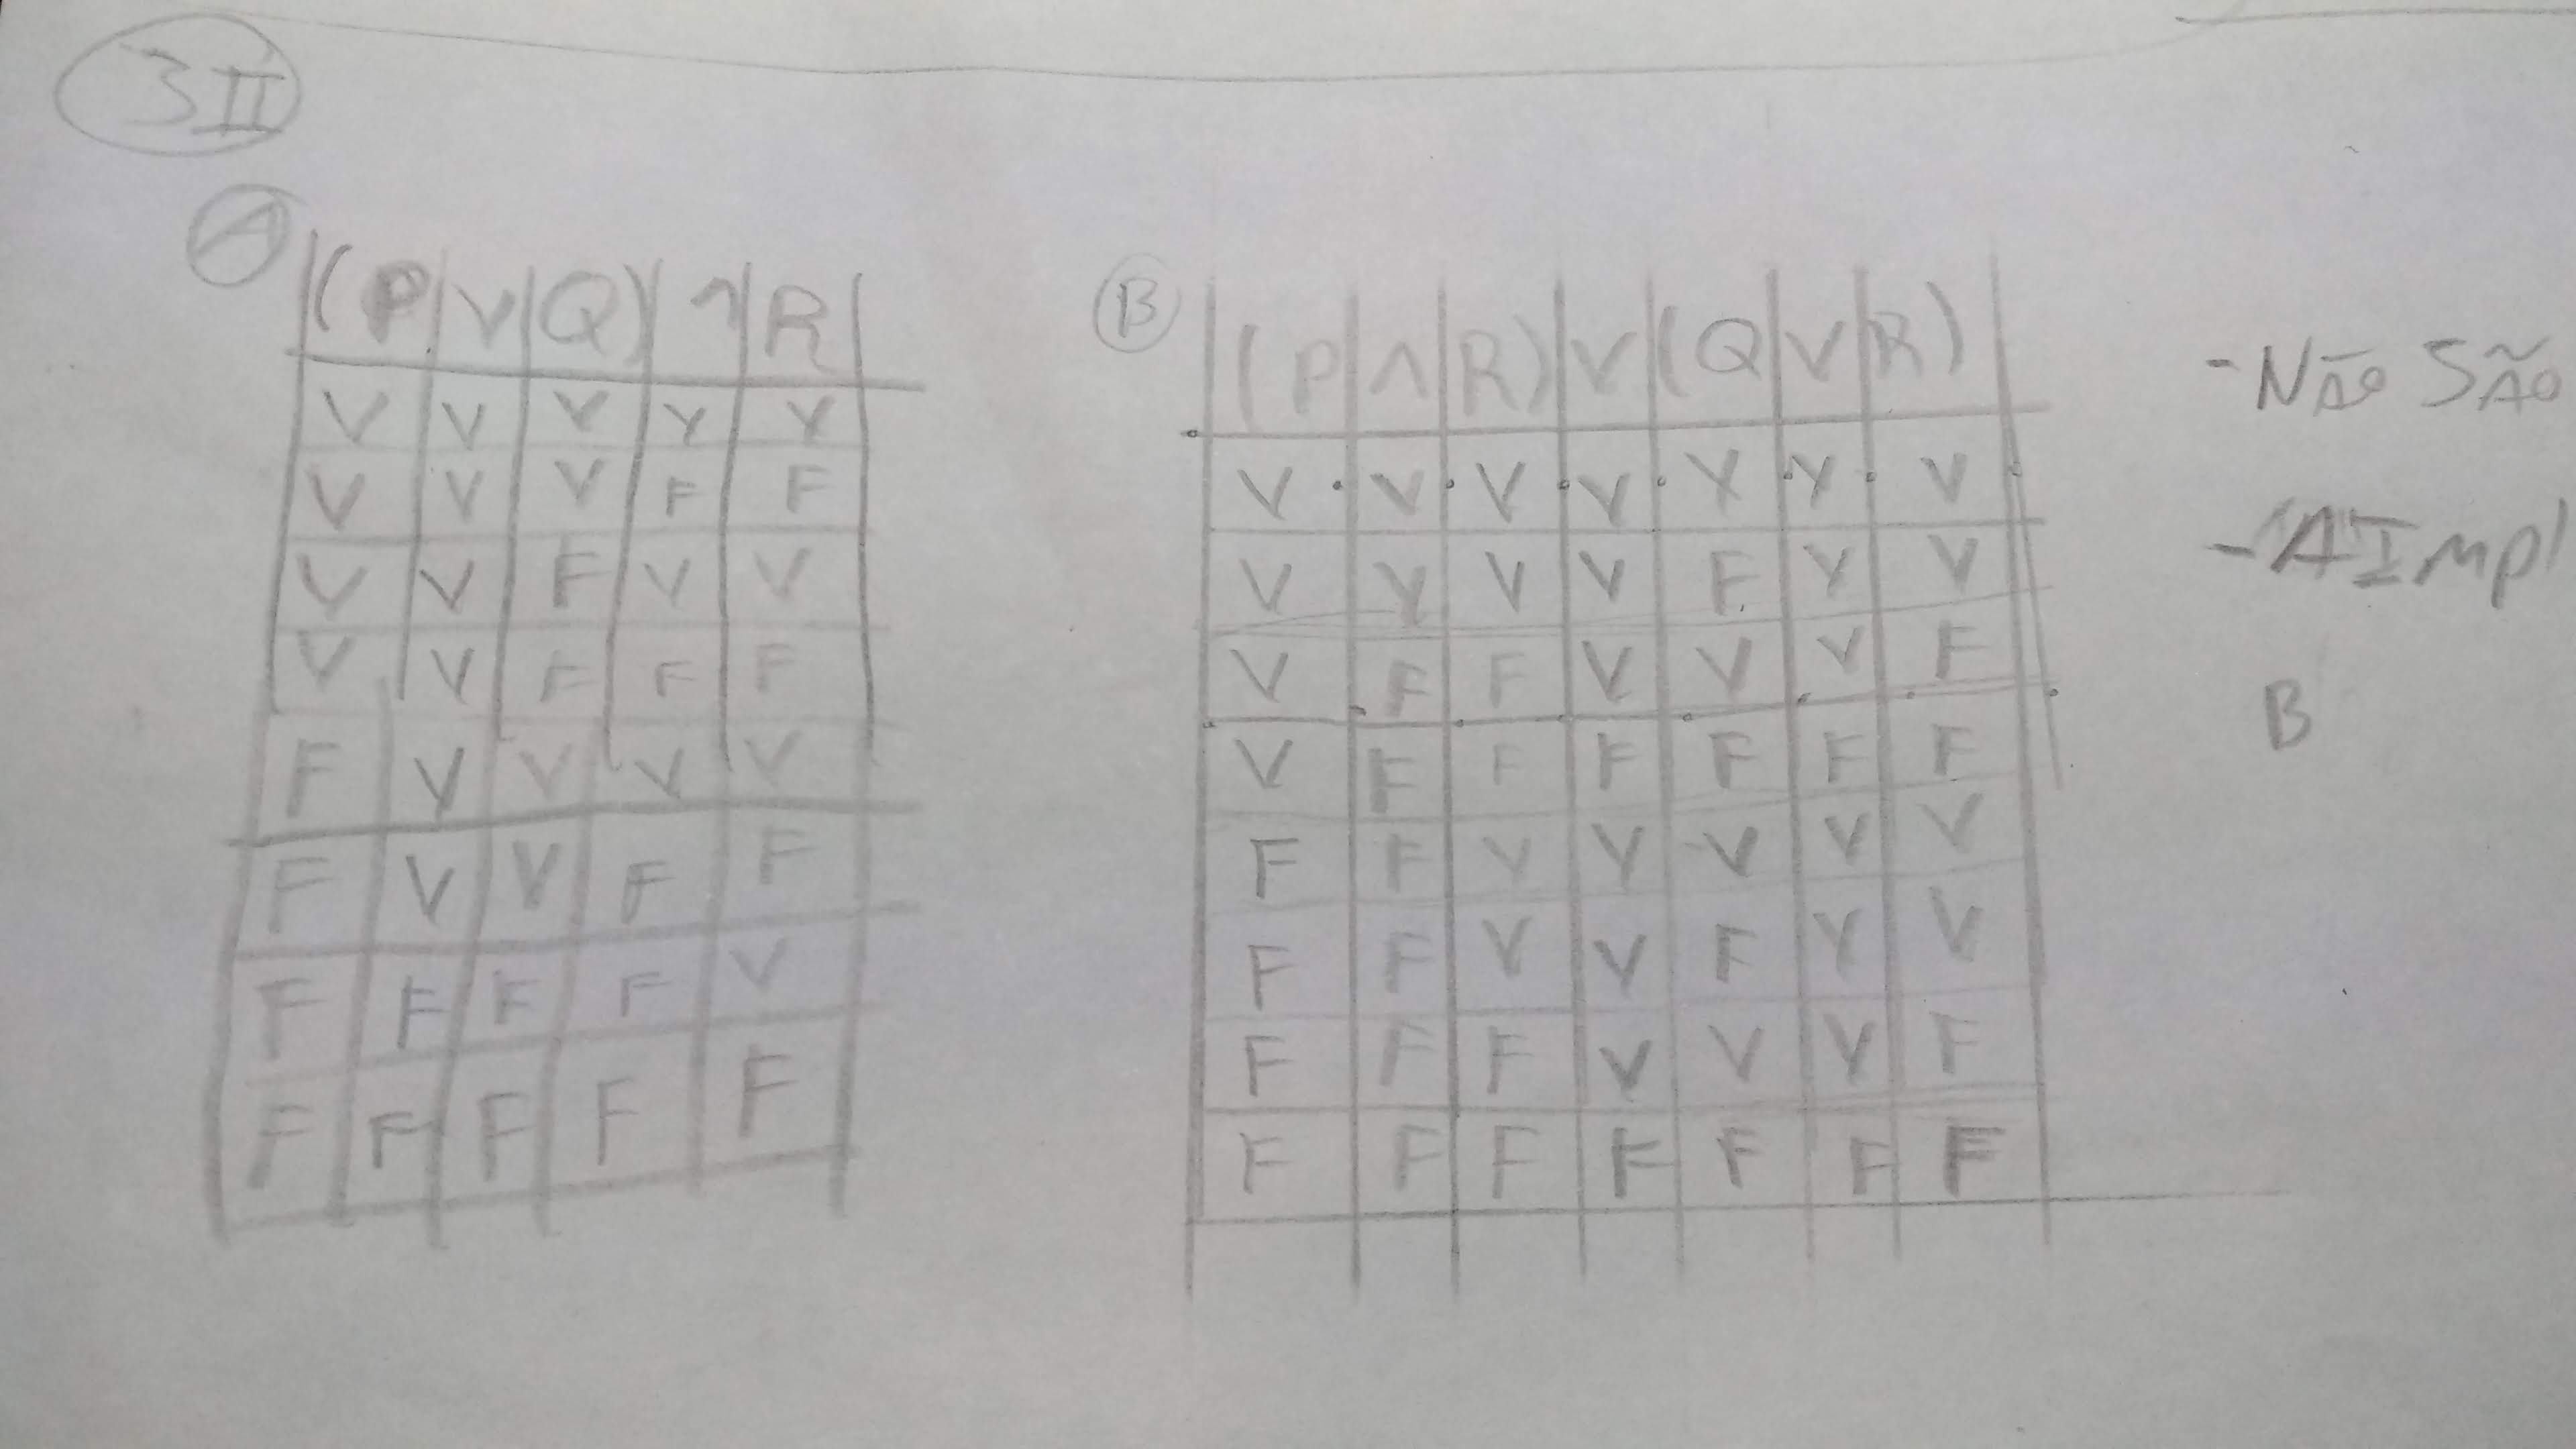 3 II
A
(P | v | Q) | ^ | R
V V V V V
V V V F F
V V F V V
V V F F F
F V V V V
F V V F F
F F F F V
F F F F F
B
(P | ^ | R) | V | (Q | V | R)
V V V V V V V
V V V V F V V
V F F V V V F
V F F F F F F
F F V V V V V
F F V V F V V
F F F V V V F
F F F F F F F
- NÃO SÃO
- A IMPl
B